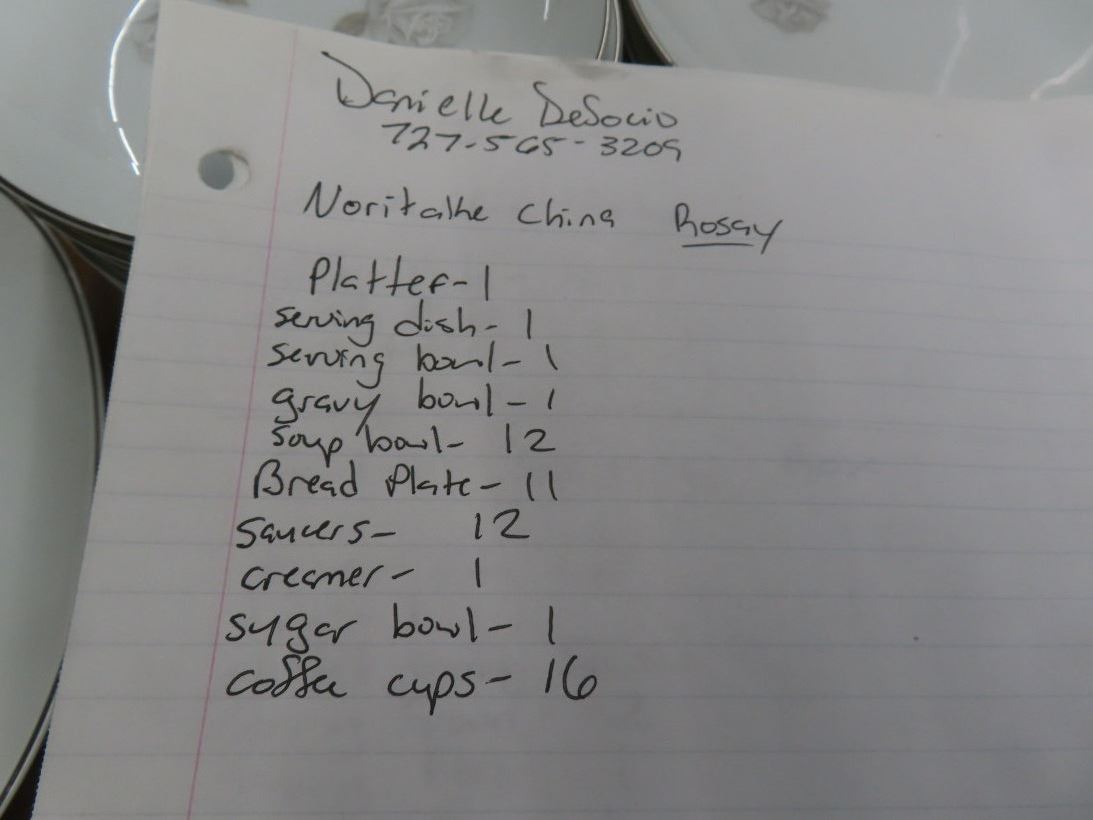 Danielle DeSocio
727-565-3209
Noritahe China Rosay
Platter-1
serving dish- 1
serving bowl- 1
gravy bowl- 1
Soup bowl- 12
Bread Plate- 11
Saucers- 12
creamer- 1
sugar bowl- 1
coffee cups- 16